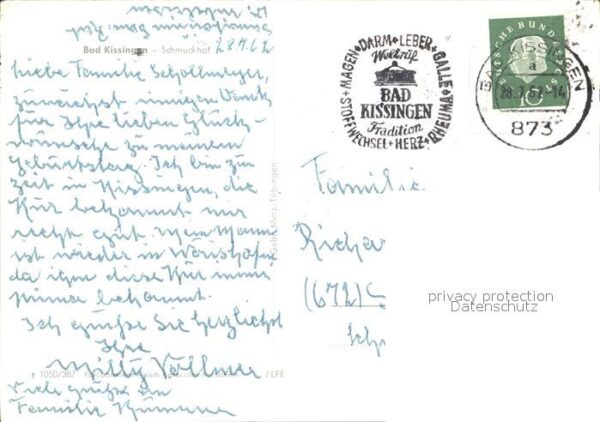 Bad Kissingen – Schmuckhof
28.7.62
Liebe Familie Schollmeyer,
zunächst innigen Dank
für Ihre lieben Glück-
wünsche zu meinem
Geburtstag. Ich bin zur
Zeit in Kissingen, die
Kur bekommt mir
recht gut. Mein Mann
ist wieder in Wörishofen
da ihm diese Kur immer
prima bekommt.
Ich grüße Sie herzlichst
Ihre
Willy Vollmer
Viele Grüße an
Familie
1050/387
ZLFE
Gebr. Metz, Tübingen
MAGEN + DARM + LEBER + GALLE + RHEUMA + HERZ + STOFFWECHSEL
Weltruf
BAD
KISSINGEN
Tradition
DEUTSCHE BUNDESPOST
10
BAD KISSINGEN
a
28.7.62-14
873
Familie
Richar
(672)
Sch
privacy protection
Datenschutz